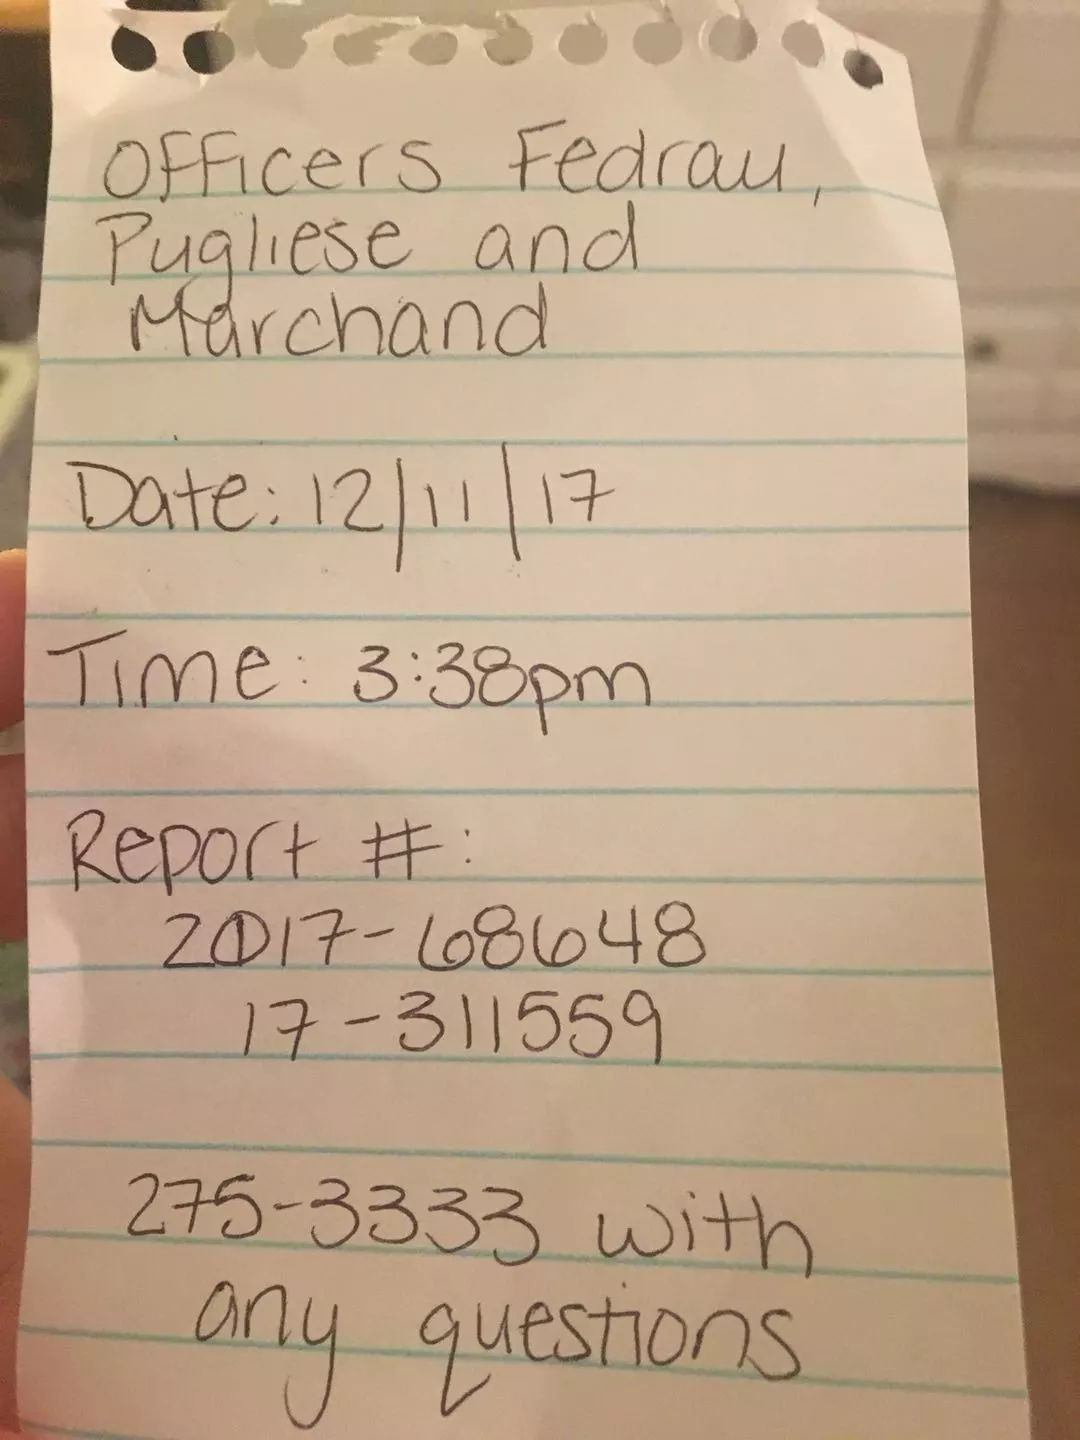 Officers Fedrau,
Pugliese and
Marchand
Date: 12/11/17
Time: 3:38pm
Report #:
2017-68648
17-311559
275-3333 with
any questions